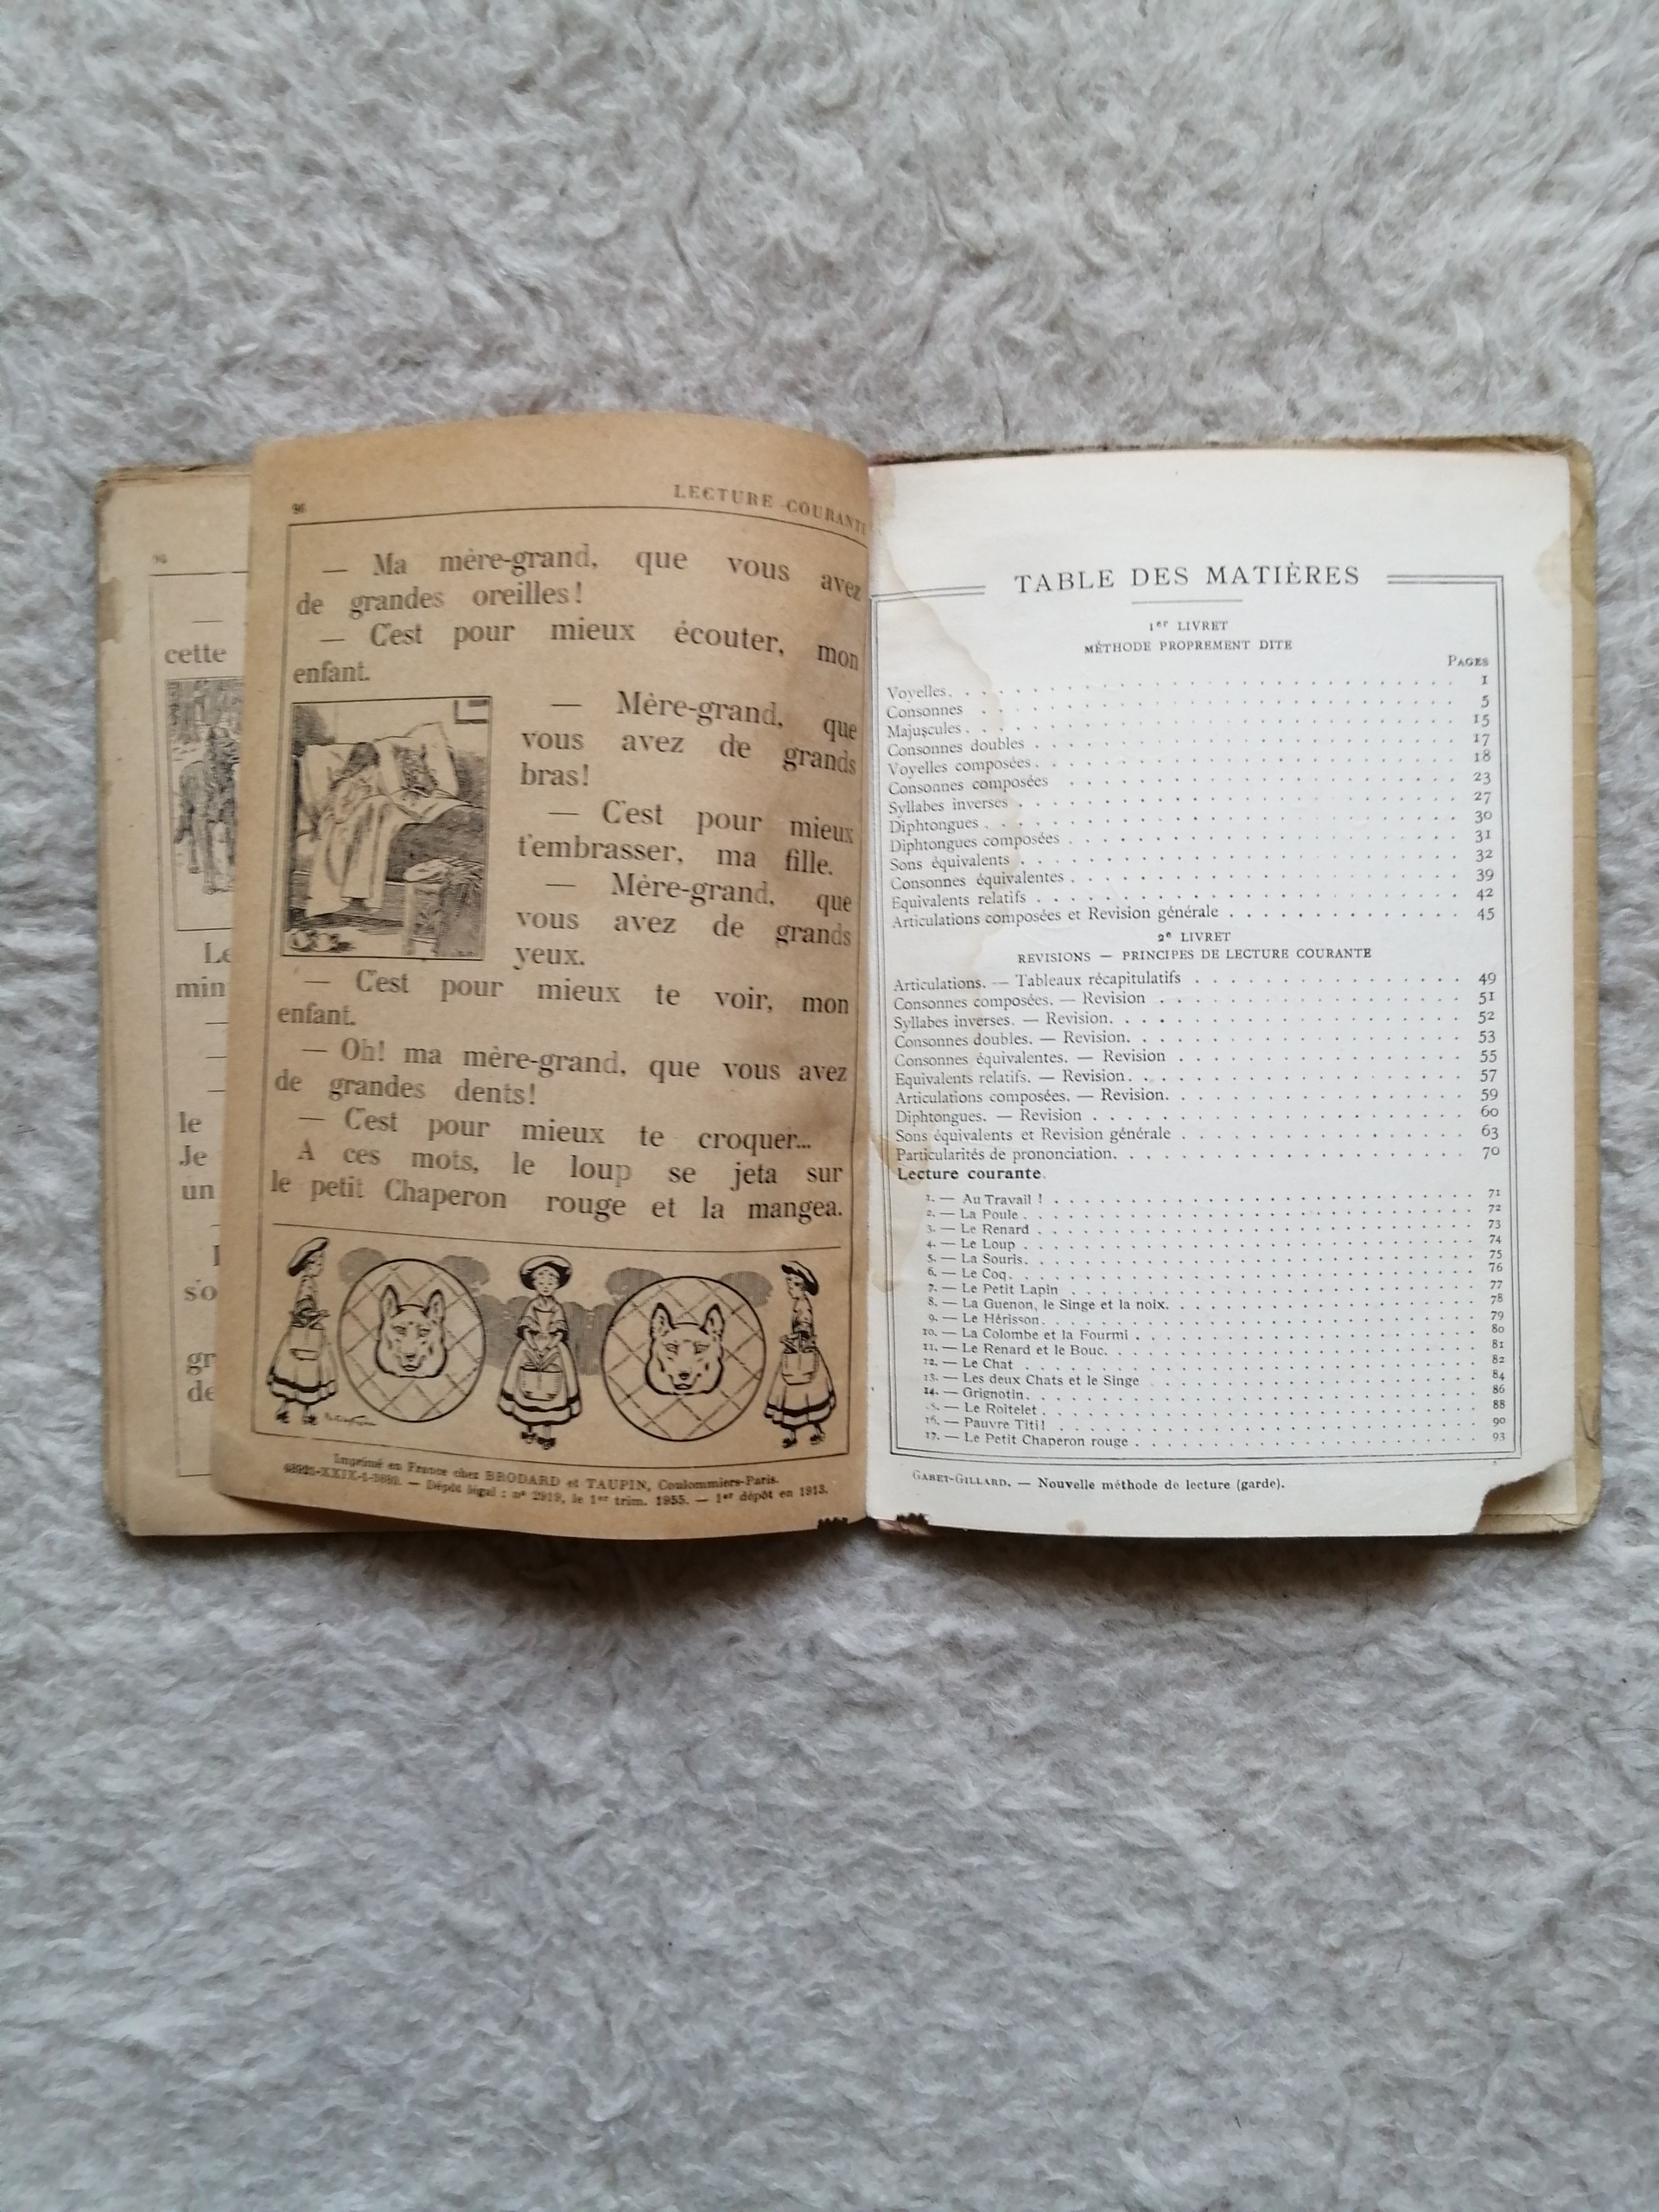 cette
Le
min
le
Je
un
s'o
gr
de
96
LECTURE COURANTE
— Ma mère-grand, que vous avez
de grandes oreilles!
— C'est pour mieux écouter, mon
enfant.
— Mère-grand, que
vous avez de grands
bras!
— C'est pour mieux
t'embrasser, ma fille.
— Mère-grand, que
vous avez de grands
yeux.
— C'est pour mieux te voir, mon
enfant.
— Oh! ma mère-grand, que vous avez
de grandes dents!
— C'est pour mieux te croquer...
A ces mots, le loup se jeta sur
le petit Chaperon rouge et la mangea.
Imprimé en France chez BRODARD et TAUPIN, Coulommiers-Paris.
— Dépôt légal : nº 2919, le 1er trim. 1955. — 1er dépôt en 1913.
TABLE DES MATIÈRES
1er LIVRET
MÉTHODE PROPREMENT DITE
PAGES
Voyelles. 1
Consonnes 5
Majuscules. 15
Consonnes doubles 17
Voyelles composées. 18
Consonnes composées 23
Syllabes inverses 27
Diphtongues 30
Diphtongues composées 31
Sons équivalents 32
Consonnes équivalentes 39
Equivalents relatifs 42
Articulations composées et Revision générale 45
2e LIVRET
REVISIONS — PRINCIPES DE LECTURE COURANTE
Articulations. — Tableaux récapitulatifs 49
Consonnes composées. — Revision 51
Syllabes inverses. — Revision. 52
Consonnes doubles. — Revision. 53
Consonnes équivalentes. — Revision 55
Equivalents relatifs. — Revision. 57
Articulations composées. — Revision. 59
Diphtongues. — Revision 60
Sons équivalents et Revision générale 63
Particularités de prononciation. 70
Lecture courante.
1. — Au Travail ! 71
2. — La Poule 72
3. — Le Renard 73
4. — Le Loup 74
5. — La Souris. 75
6. — Le Coq. 76
7. — Le Petit Lapin 77
8. — La Guenon, le Singe et la noix. 78
9. — Le Hérisson. 79
10. — La Colombe et la Fourmi 80
11. — Le Renard et le Bouc. 81
12. — Le Chat 82
13. — Les deux Chats et le Singe 84
14. — Grignotin. 86
15. — Le Roitelet 88
16. — Pauvre Titi! 90
17. — Le Petit Chaperon rouge 93
GABET-GILLARD. — Nouvelle méthode de lecture (garde).